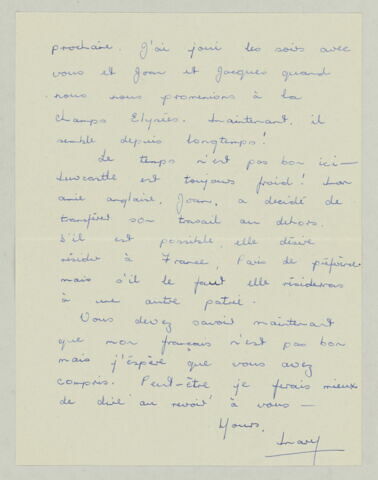 prochaine. J'ai joui les soirs avec
vous et Joan et Jacques quand
nous nous promenions à la
Champs Elysées. Maintenant, il
semble depuis longtemps!
Le temps n'est pas bon ici —
Newcastle est toujours froid! Mon
amie anglaise, Joan, a décidé de
transférer son travail au dehors.
S'il est possible, elle désire
résider à France, Paris de préférence
mais s'il le faut elle résiderais
à une autre patrie.
Vous devez savoir maintenant
que mon français n'est pas bon
mais j'éspère que vous avez
compris. Peut-être je ferais mieux
de dire 'au revoir' à vous —
Yours,
Mary